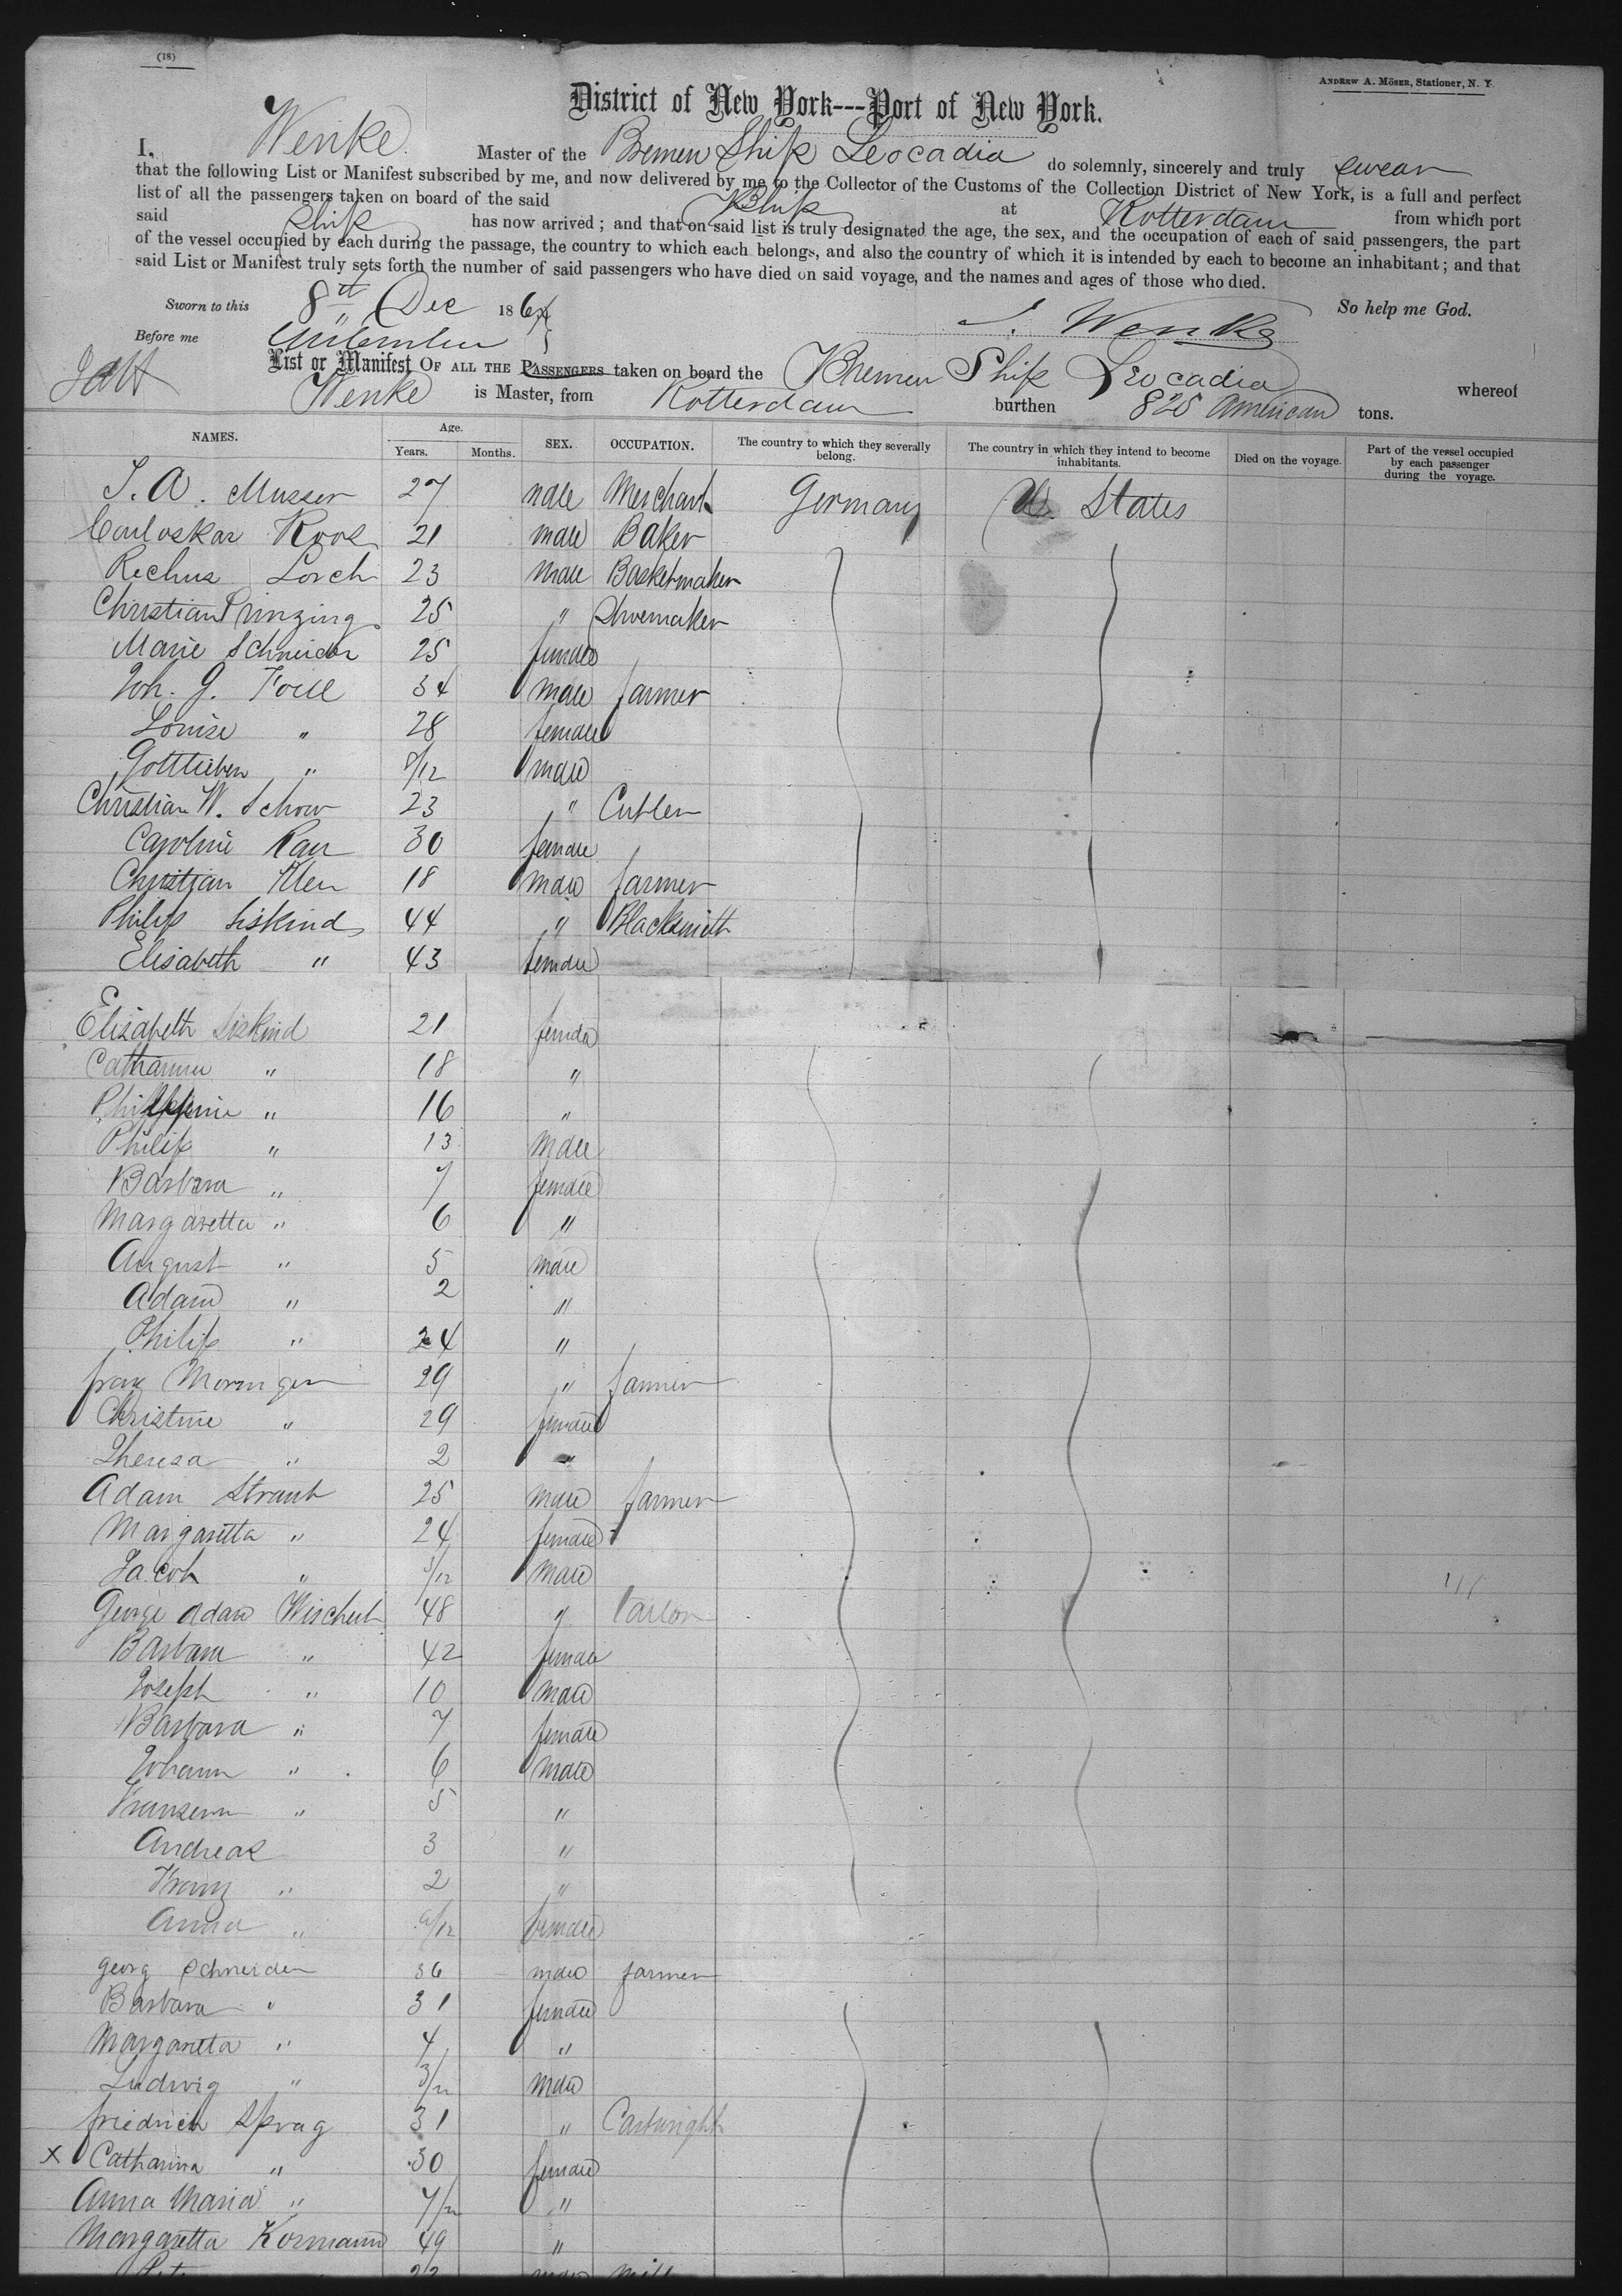 (18)
ANDREW A. MÖSER, Stationer, N. Y.
District of New York---Port of New York.
I, Wenke Master of the Bremen Ship Leocadia do solemnly, sincerely and truly swear
that the following List or Manifest subscribed by me, and now delivered by me to the Collector of the Customs of the Collection District of New York, is a full and perfect
list of all the passengers taken on board of the said Ship at Rotterdam from which port
said ship has now arrived; and that on said list is truly designated the age, the sex, and the occupation of each of said passengers, the part
of the vessel occupied by each during the passage, the country to which each belongs, and also the country of which it is intended by each to become an inhabitant; and that
said List or Manifest truly sets forth the number of said passengers who have died on said voyage, and the names and ages of those who died.
Sworn to this 8th Dec 186 So help me God.
Wenke
Before me
List or Manifest OF ALL THE PASSENGERS taken on board the Bremen Ship Leocadia whereof
Wenke is Master, from Rotterdam burthen 825 American tons.
NAMES. Age. Years. Months. SEX. OCCUPATION. The country to which they severally belong. The country in which they intend to become inhabitants. Died on the voyage. Part of the vessel occupied by each passenger during the voyage.
J. A. Musser 27 male Merchant Germany U. States
Carl oskar Roos 21 male Baker
Rochus Lorch 23 male Basketmaker
Christian Prinzing 25 " Shoemaker
Marie Schneider 25 female
Joh. G. Foell 34 male farmer
Louise " 28 female
Gottlieben " 8/12 male
Christian W. Schow 23 " Cutler
Caroline Rau 30 female
Christian Klen 18 male farmer
Philip Siskind 44 " Blacksmith
Elisabeth " 43 female
Elisabeth Siskind 21 female
Catharina " 18 "
Philippine " 16 "
Philip " 13 male
Barbara " 7 female
Margaretta " 6 "
August " 5 male
Adam " 2 "
Philip " 24 "
franz 29 " farmer
Christine " 29 female
Theresa " 2 "
Adam Straub 25 male farmer
Margaretta " 24 female
Jacob " /12 male
George Adam Wischert 48 "
Barbara " 42 female
Joseph " 10 male
Barbara " 7 female
Johann " 6 male
" 5 "
Andreas 3 "
Franz " 2 "
Anna " /12 female
georg Schneider 36 male farmer
Barbara " 31 female
Margaretta " 4 "
Ludwig " 3/12 male
friedrich Sprag 31 " Cartwright
x Catharina " 30 female
Anna Maria " 7/12 "
Margaretta Kormann 49 "